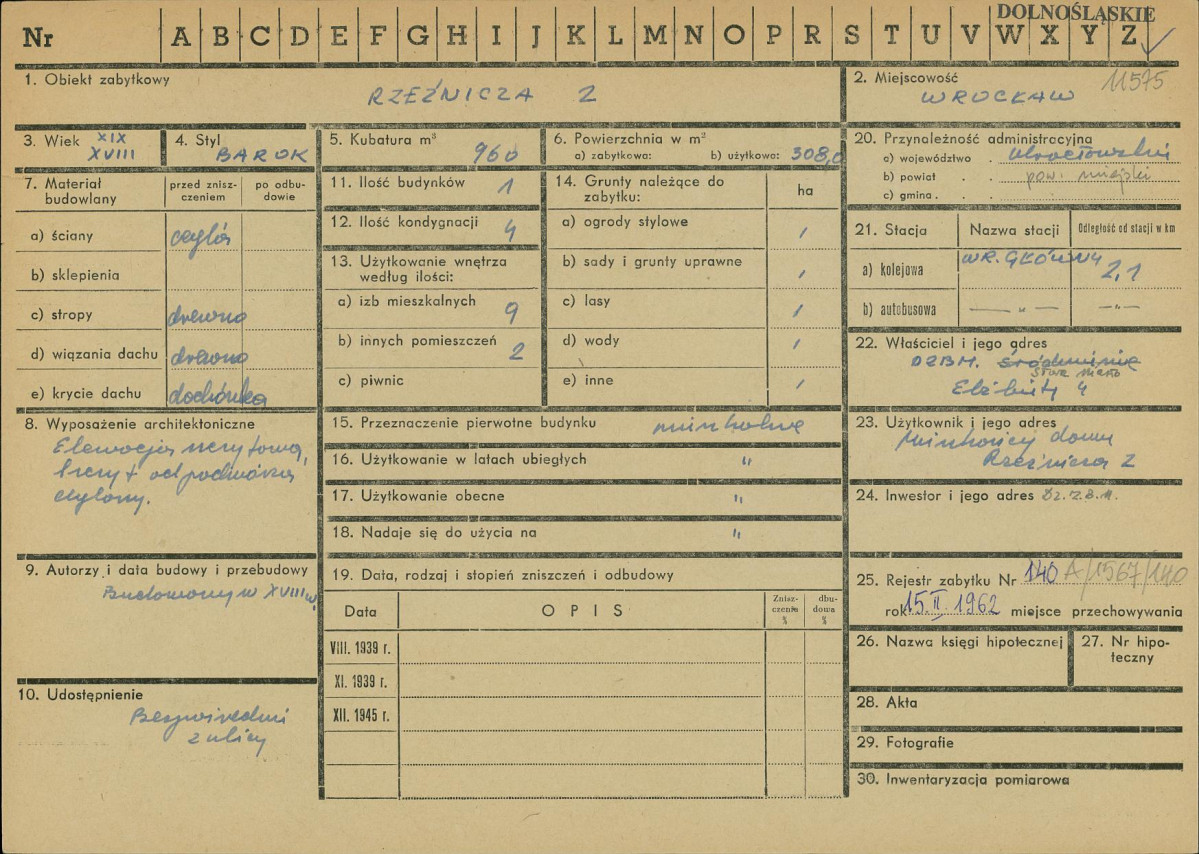 DOLNOŚLĄSKIE
Nr A B C D E F G H I J K L M N O P R S T U V W X Y Z
1. Obiekt zabytkowy
RZEŹNICZA 2
2. Miejscowość 11575
WROCŁAW
3. Wiek XIX
XVIII
4. Styl
BAROK
5. Kubatura m³
960
6. Powierzchnia w m²
a) zabytkowa: b) użytkowa: 308,0
20. Przynależność administracyjna
a) województwo . Wrocławskie
b) powiat . . pow. miejski
c) gmina . . .
7. Materiał budowlany
przed zniszczeniem
po odbudowie
a) ściany cegła
b) sklepienia
c) stropy drewno
d) wiązania dachu drewno
e) krycie dachu dachówka
11. Ilość budynków 1
12. Ilość kondygnacji 4
13. Użytkowanie wnętrza
według ilości:
a) izb mieszkalnych 9
b) innych pomieszczeń 2
c) piwnic
14. Grunty należące do
zabytku:
ha
a) ogrody stylowe /
b) sady i grunty uprawne /
c) lasy /
d) wody /
e) inne /
21. Stacja Nazwa stacji Odległość od stacji w km
a) kolejowa WR. GŁÓWNY 2,1
b) autobusowa — „ — —„—
22. Właściciel i jego adres
DZBM. Śródmieście
Stare Miasto
Elżbiety 4
8. Wyposażenie architektoniczne
Elewacja szczytowa,
szczyt od podwórza
ceglany.
15. Przeznaczenie pierwotne budynku mieszkalne
16. Użytkowanie w latach ubiegłych "
17. Użytkowanie obecne "
18. Nadaje się do użycia na "
23. Użytkownik i jego adres
Mieszkańcy domu
Rzeźnicza 2
24. Inwestor i jego adres Dz.Z.B.M.
9. Autorzy i data budowy i przebudowy
Budowany w XVIII w.
19. Data, rodzaj i stopień zniszczeń i odbudowy
Data OPIS Zniszczenie % dbudowa %
VIII. 1939 r.
XI. 1939 r.
XII. 1945 r.
25. Rejestr zabytku Nr 140 A/1567/140
rok 15.II.1962 miejsce przechowywania
26. Nazwa księgi hipotecznej
27. Nr hipoteczny
10. Udostępnienie
Bezpośredni
z ulicy
28. Akta
29. Fotografie
30. Inwentaryzacja pomiarowa